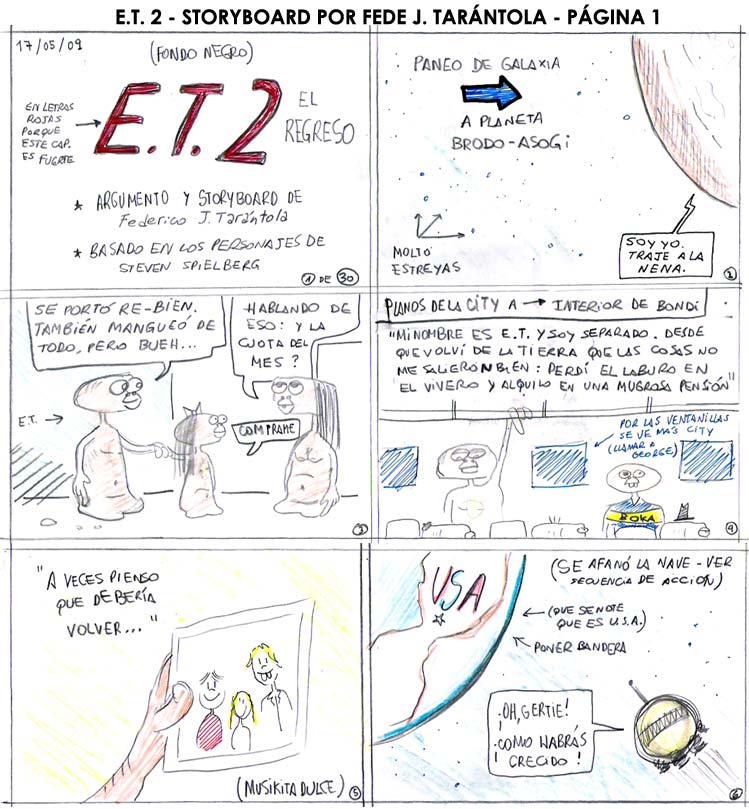 E.T. 2 - STORYBOARD POR FEDE J. TARÁNTOLA - PÁGINA 1
17/05/09
(FONDO NEGRO)
EN LETRAS
ROJAS
PORQUE
ESTE CAP.
ES FUERTE
E.T. 2
EL
REGRESO
* ARGUMENTO Y STORYBOARD DE
Federico J. Tarántola
* BASADO EN LOS PERSONAJES DE
STEVEN SPIELBERG
1 DE 30
PANEO DE GALAXIA
A PLANETA
BRODO-ASOGI
MOLTO
ESTREYAS
SOY YO.
TRAJE A LA
NENA.
2
SE PORTÓ RE-BIEN.
TAMBIÉN MANGUEÓ DE
TODO, PERO BUEH...
HABLANDO DE
ESO: Y LA
CUOTA DEL
MES?
E.T.
COMPRAME
3
PLANOS DE LA CITY A → INTERIOR DE BONDI
"MI NOMBRE ES E.T. Y SOY SEPARADO. DESDE
QUE VOLVÍ DE LA TIERRA QUE LAS COSAS NO
ME SALIERON BIEN: PERDÍ EL LABURO EN
EL VIVERO Y ALQUILO EN UNA MUGROSA PENSIÓN"
POR LAS VENTANILLAS
SE VE MÁS CITY
(LLAMAR A
GEORGE)
BOKA
4
"A VECES PIENSO
QUE DEBERÍA
VOLVER..."
(MUSIKITA DULCE)
5
USA
(SE AFANÓ LA NAVE - VER
SECUENCIA DE ACCIÓN)
(QUE SE NOTE
QUE ES U.S.A.)
PONER BANDERA
¡OH, GERTIE!
¡CÓMO HABRÁS
CRECIDO!
6